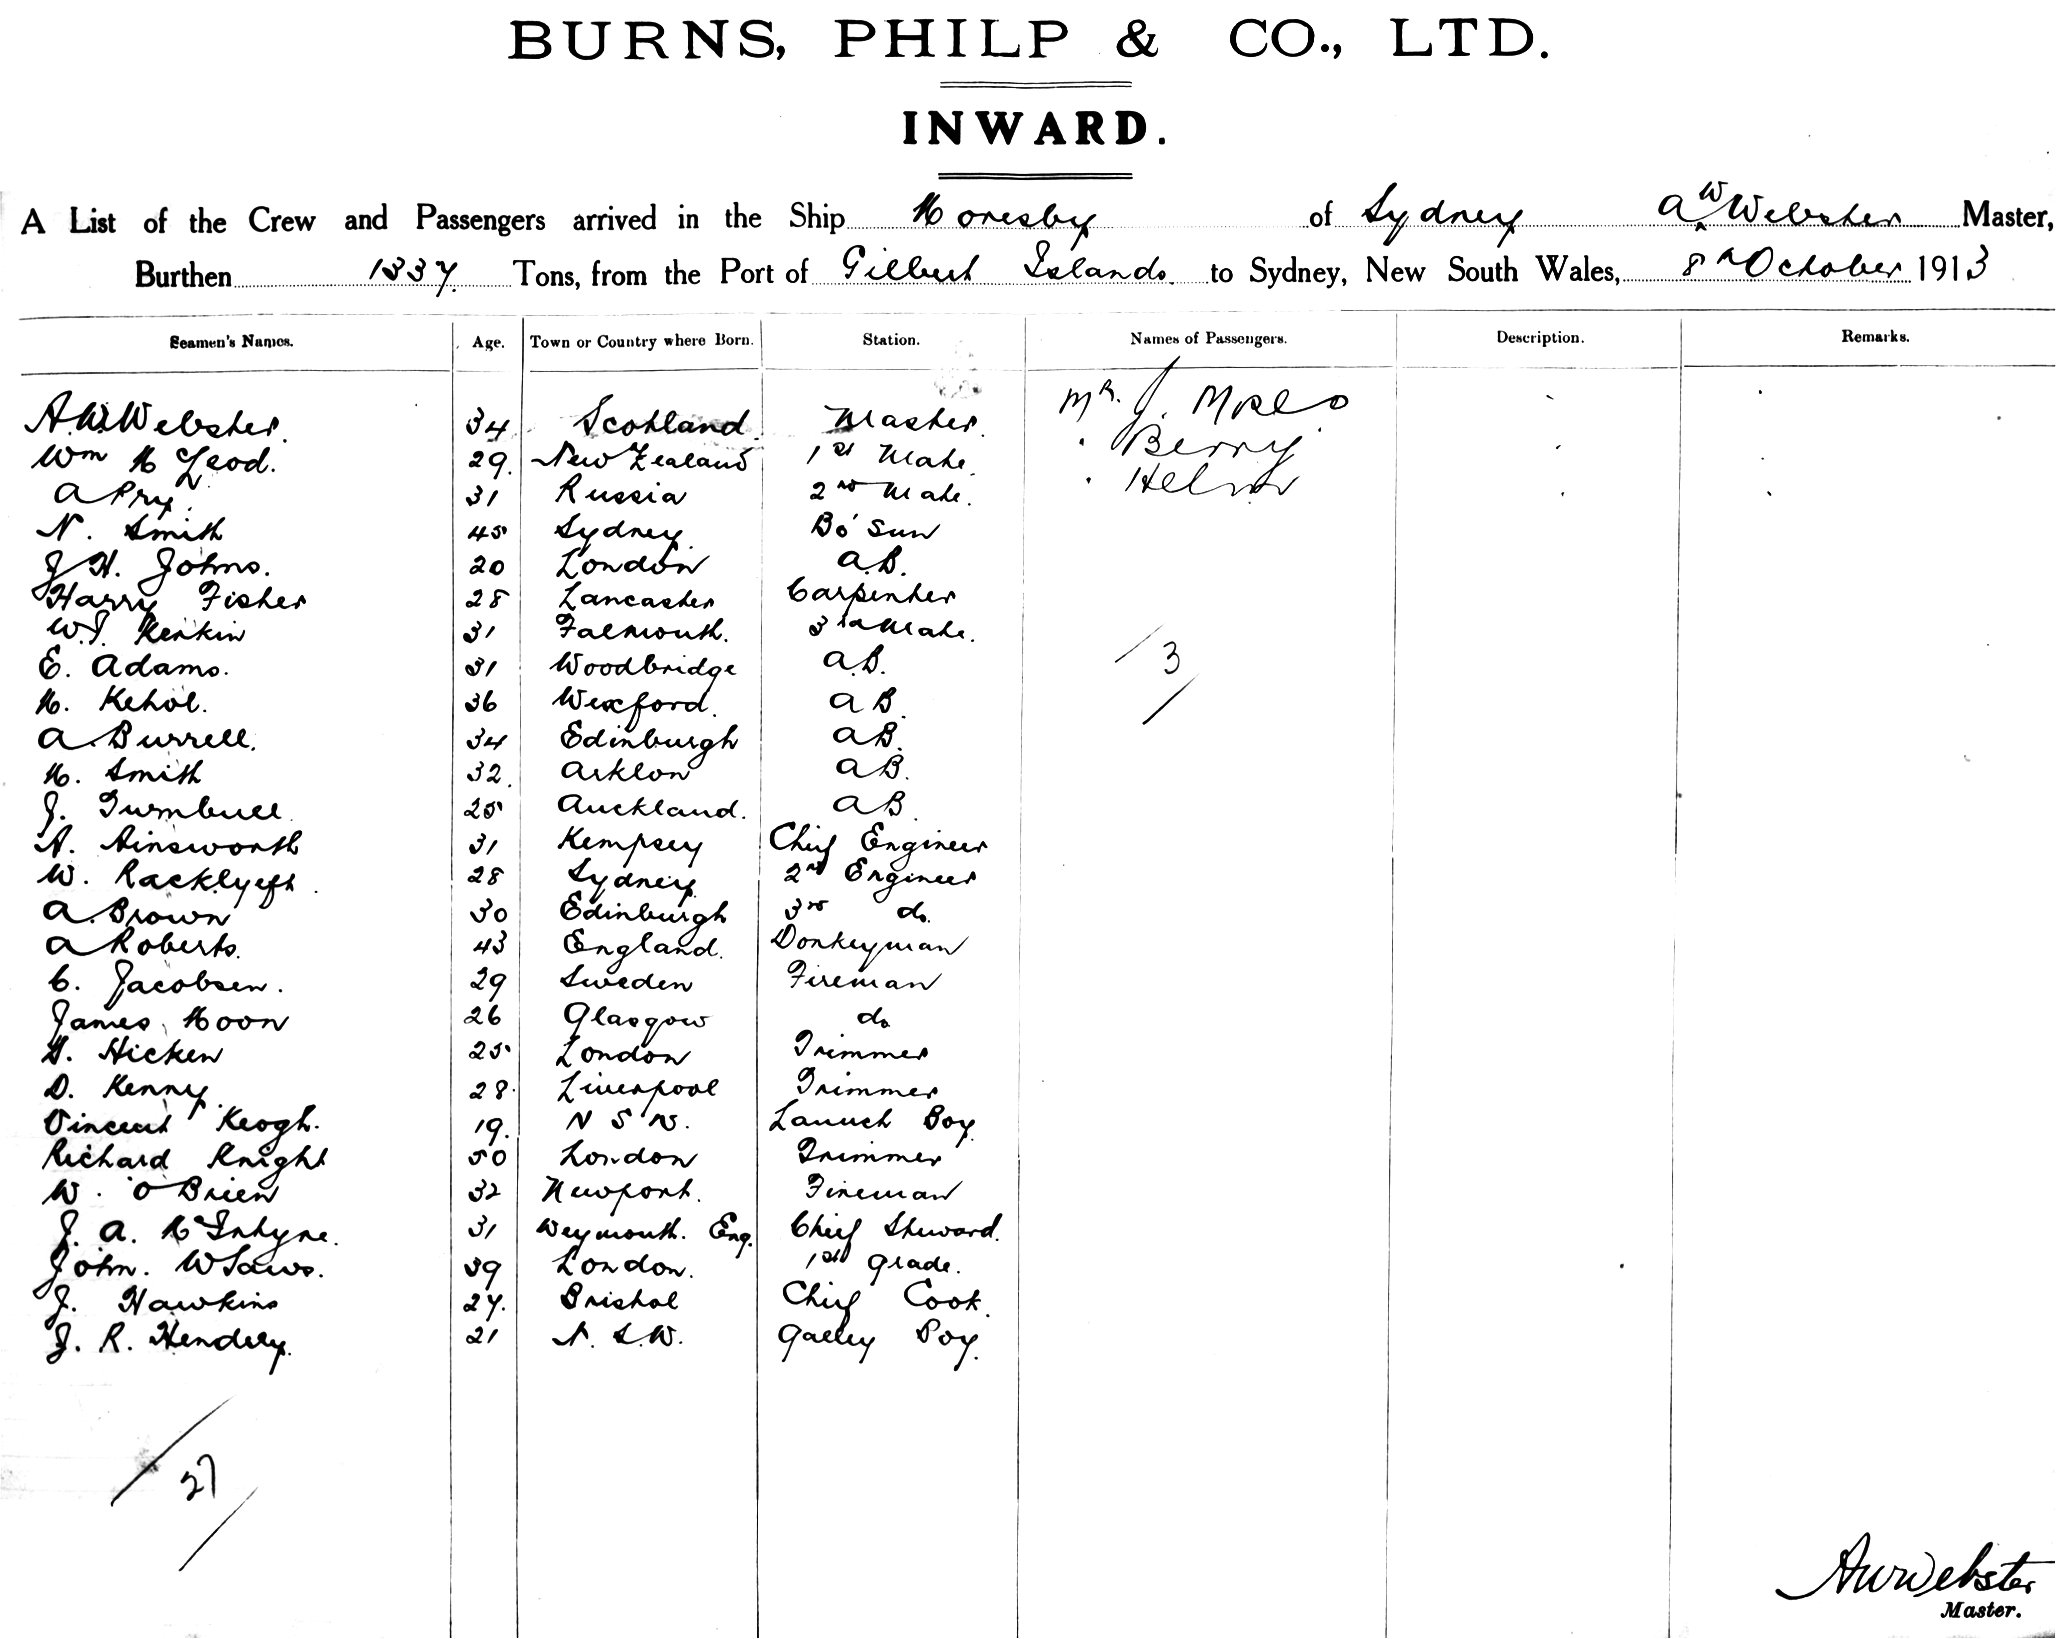 BURNS, PHILP & CO., LTD.
INWARD.
A List of the Crew and Passengers arrived in the Ship Moresby of Sydney A W Webster Master,
Burthen 1337 Tons, from the Port of Gilbert Islands. to Sydney, New South Wales, 8th October 1913
Seamen's Names. Age. Town or Country where Born. Station. Names of Passengers. Description. Remarks.
A.W. Webster. 34 Scotland. Master. Mr. J. 
Wm McLeod. 29. New Zealand 1st Mate. " Berry
A Pry. 31 Russia 2nd Mate. "
N. Smith 45 Sydney Bo'sun
J H. Johns. 20 London A.B.
Harry Fisher 28 Lancaster Carpenter
W.J. Kenkin 31 Falmouth. 3rd Mate.
E. Adams. 31 Woodbridge A.B. 3
M. Kehol. 36 Wexford. A B.
A. Burrell. 34 Edinburgh A B.
M. Smith 32. Arklow A B.
J. Turnbull 25 Auckland. A B
A. Ainsworth 31 Kempsey Chief Engineer
W. Racklyeft. 28 Sydney 2nd Engineer
A. Brown 30 Edinburgh 3rd do.
A Roberts. 43 England. Donkeyman
C. Jacobsen. 29 Sweden Fireman
James Moon 26 Glasgow do
H. Hicken 25 London Trimmer
D. Kenny 28. Liverpool Trimmer
Vincent Keogh. 19. N S W. Launch Boy
Richard Knight 50 London Trimmer
W. O'Brien 32 Newport. Fireman
J. A. McIntyre. 31 Weymouth. Eng. Chief Steward.
John. W Saws. 39 London. 1st Grade.
J. Hawkins 27. Bristol Chief Cook.
J. R. Hendry. 21 N. S.W. Galley Boy.
27
AWWebster
Master.